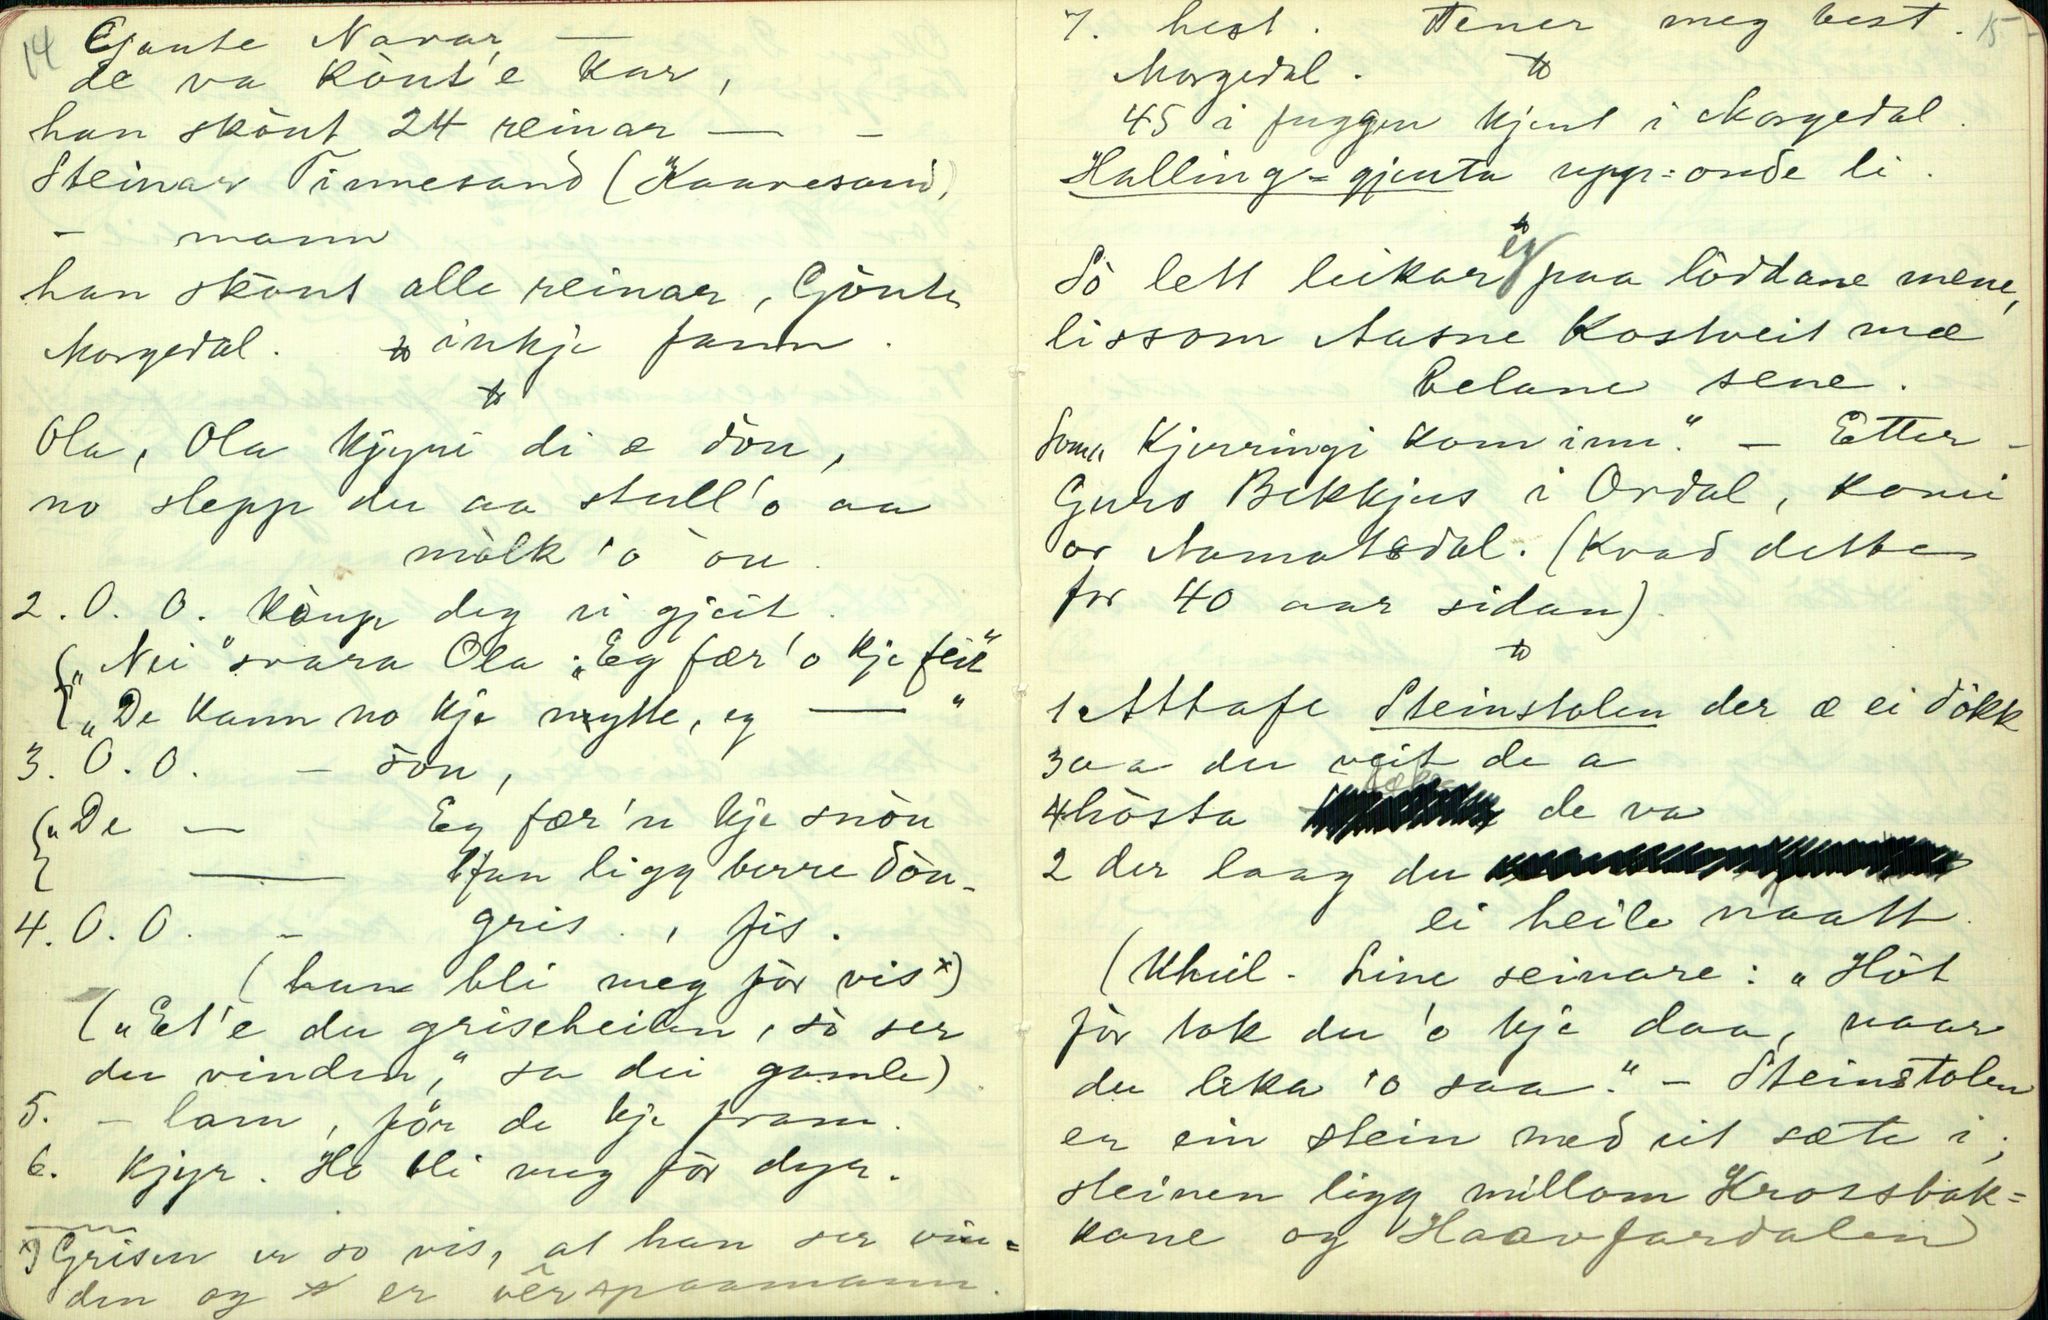 14
Gjønte Navar, —
de va kònt'e kar,
han skònt 24 reinar — –
Steinar Tinnesand (Kaavesand,
– mann
han skònt alle reinar, Gjònte
Morgedal. inkje fann.
Ola, Ola kjyni di æ dòu,
no slepp du aa stull'o aa
mòlk 'o òu.
2. O. O. kòup deg ei gjeit.
„Nei" svara Ola „Eg fær'o kje feit"
„De kann no kje nytte, eg —— "
3. O. O. – sòu,
„De — Eg fær'n kje snòu
—— Han ligg berre dòu-
4. O. O. – gris., fis.
(han bli meg för vis x)
(„Et'e du griseheilen, sò ser
du vinden," sa dei gamle)
5. – lam, för de kje fram.
6. Kjyr. Ho bli meg för dyr.
x) Grisen er so vis, at han ser vin=
den og er vêrspaamann.
15
7. hest. Tener meg best.
Morgedal.
45 i fuggen kjent i Morgedal.
Halling=gjenta upp=onde li.
Sò lett leikar eg paa lòddane mene,
lissom Aasne Kostveit mæ
belane sene.
Som „Kjerringi kom inn." – Etter
Guro Bekkjus i Ordal, komi
or Aamotsdal. (Kvad dette
for 40 aar sidan).
1 Attafe Steinstolen der æ ei dökk
3 aa du veit de a
4 hòsta de va
2 der laag du
ei heile naatt.
(Kheil- Line seinare: „Hòt
för tok du 'o kje daa, naar
du leka 'o saa." – Steinstolen
er ein stein med eit sæte i;
steinen ligg millom Krossbak=
kane og Haavfardalen)